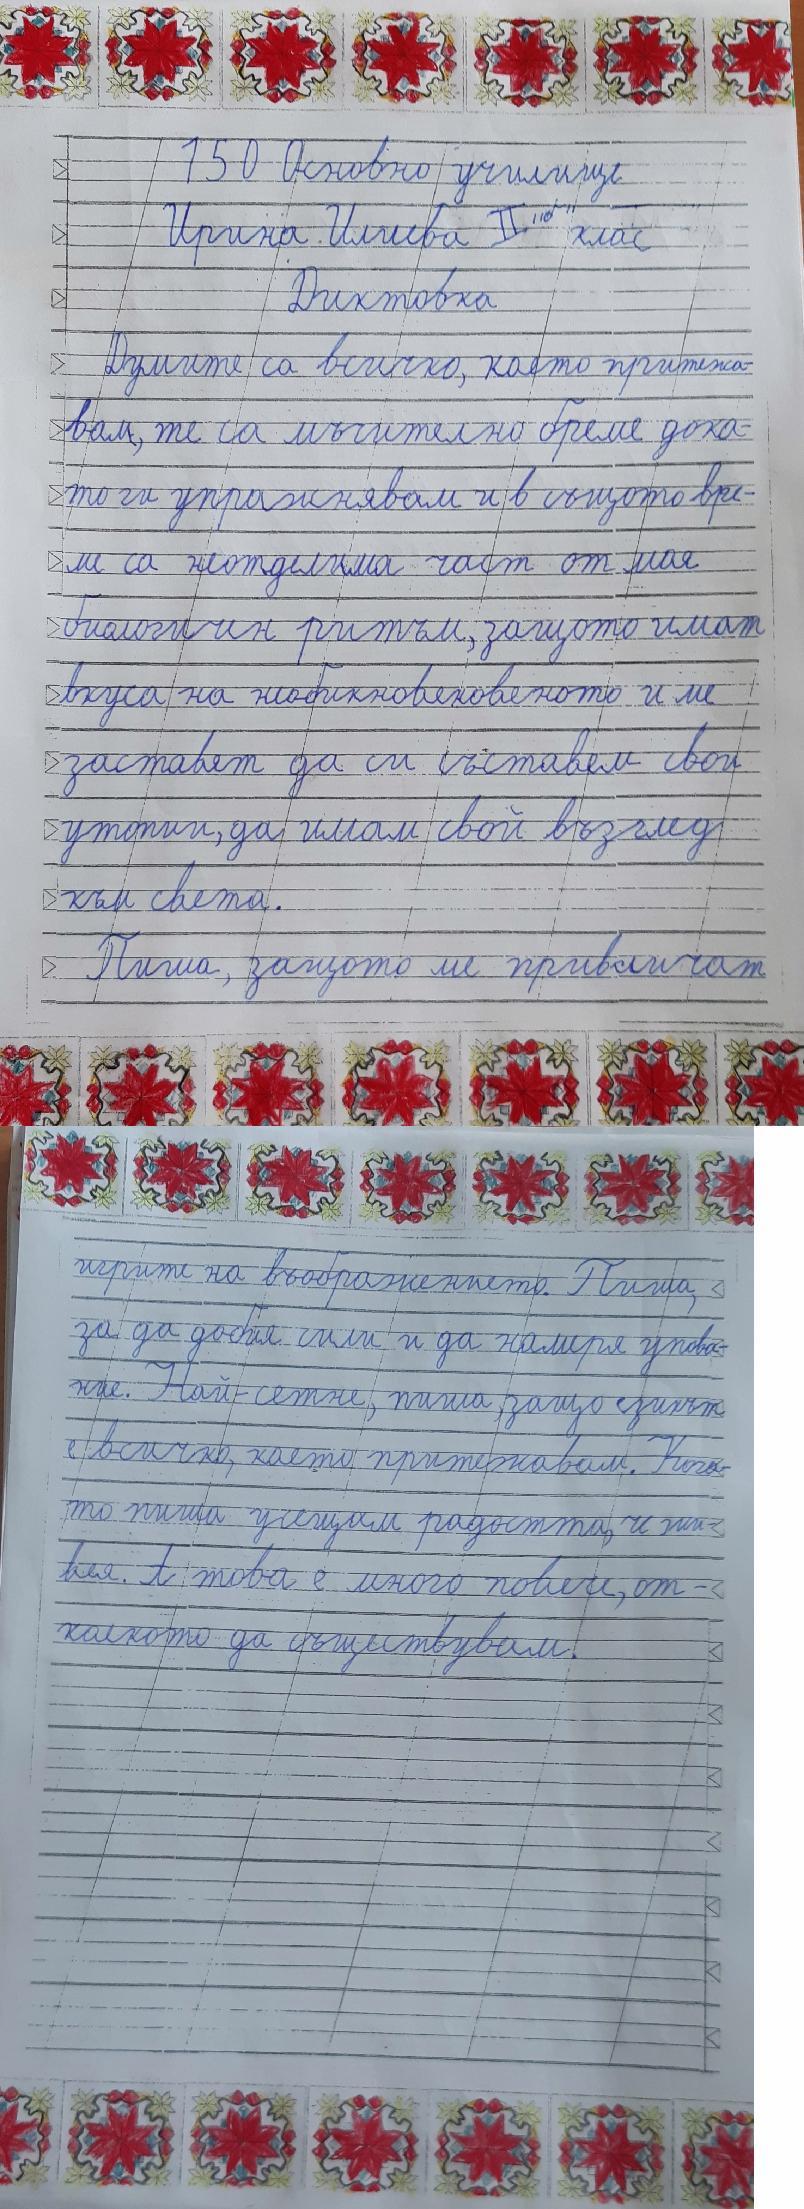 150 Основно училище
Ирина Илиева II "б" клас
Диктовка
Думите са всичко, което притежа-
вам, те са мъчително бреме дока-
то ги упражнявам и в същото вре-
ме са неотделима част от моя
биологичин ритъм, защото имат
вкуса на необикновековеното и ме
заставят да си съставем свои
утопии, да имам свой възглед
към света.
Пиша, защото ме привличат
игрите на въображението. Пиша,
за да добия сили и да намеря упова-
ние. Най-сетне, пиша, защо езикът
е всичко, което притежавам. Кога-
то пиша усещам радостта, че жи-
вея. А това е много повече, от-
колкото да съществувам.